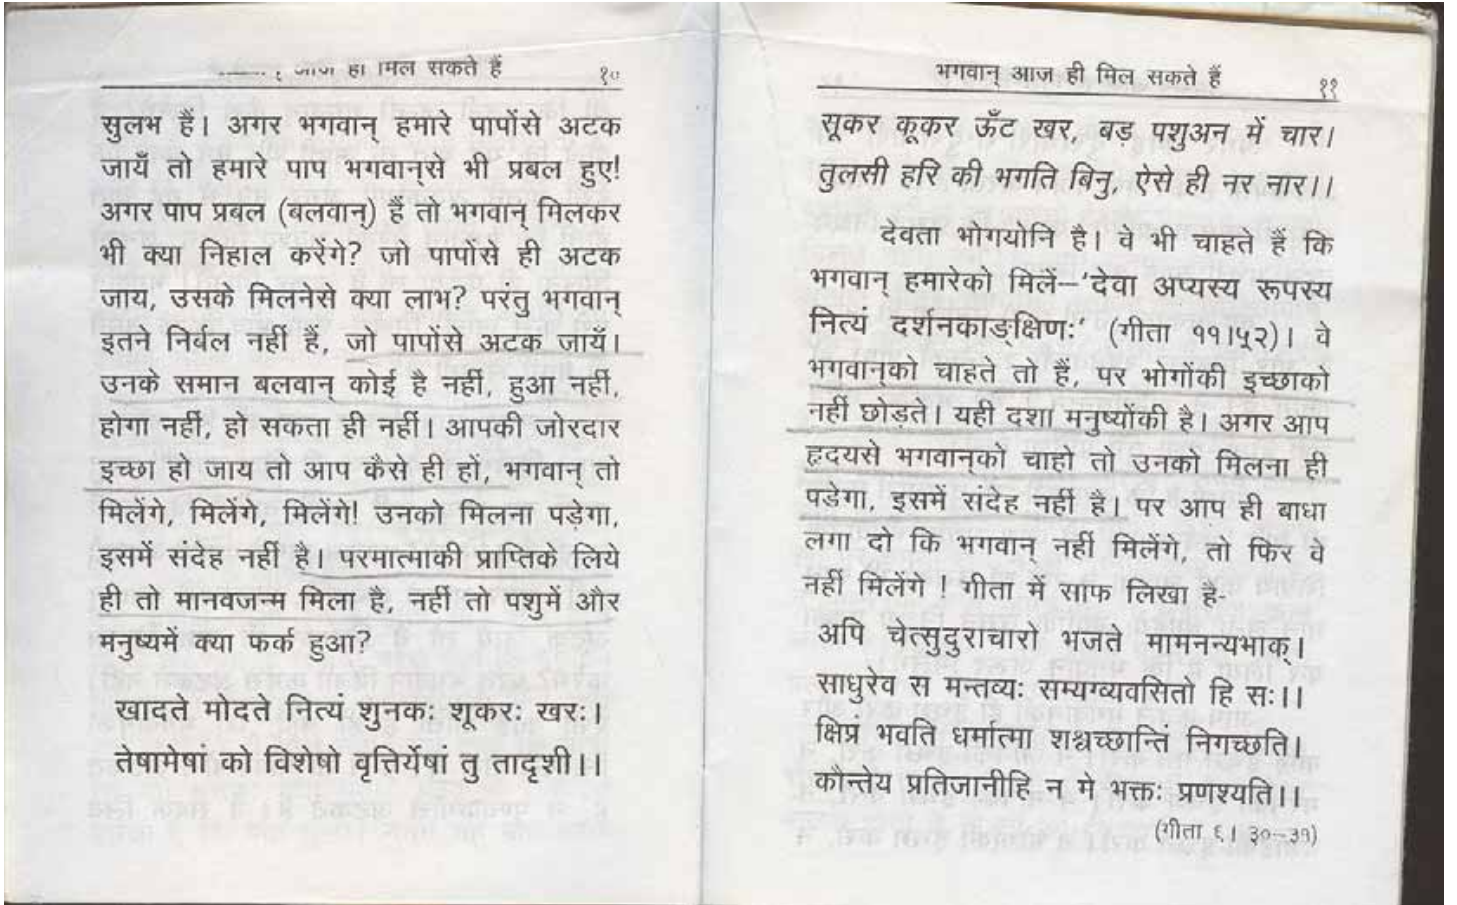 आज ही मिल सकते हैं १०
सुलभ हैं। अगर भगवान् हमारे पापोंसे अटक
जायँ तो हमारे पाप भगवान्‌से भी प्रबल हुए!
अगर पाप प्रबल (बलवान्) हैं तो भगवान् मिलकर
भी क्या निहाल करेंगे? जो पापोंसे ही अटक
जाय, उसके मिलनेसे क्या लाभ? परंतु भगवान्
इतने निर्बल नहीं हैं, जो पापोंसे अटक जायँ।
उनके समान बलवान् कोई है नहीं, हुआ नहीं,
होगा नहीं, हो सकता ही नहीं। आपकी जोरदार
इच्छा हो जाय तो आप कैसे ही हों, भगवान् तो
मिलेंगे, मिलेंगे, मिलेंगे! उनको मिलना पड़ेगा,
इसमें संदेह नहीं है। परमात्माकी प्राप्तिके लिये
ही तो मानवजन्म मिला है, नहीं तो पशुमें और
मनुष्यमें क्या फर्क हुआ?
खादते मोदते नित्यं शुनकः शूकरः खरः।
तेषामेषां को विशेषो वृत्तिर्येषां तु तादृशी।।
भगवान् आज ही मिल सकते हैं ११
सूकर कूकर ऊँट खर, बड़ पशुअन में चार।
तुलसी हरि की भगति बिनु, ऐसे ही नर नार।।
देवता भोगयोनि है। वे भी चाहते हैं कि
भगवान् हमारेको मिलें–'देवा अप्यस्य रूपस्य
नित्यं दर्शनकाङ्क्षिणः' (गीता ११।५२)। वे
भगवान्‌को चाहते तो हैं, पर भोगोंकी इच्छाको
नहीं छोड़ते। यही दशा मनुष्योंकी है। अगर आप
हृदयसे भगवान्‌को चाहो तो उनको मिलना ही
पडेगा, इसमें संदेह नहीं है। पर आप ही बाधा
लगा दो कि भगवान् नहीं मिलेंगे, तो फिर वे
नहीं मिलेंगे ! गीता में साफ लिखा है-
अपि चेत्सुदुराचारो भजते मामनन्यभाक्।
साधुरेव स मन्तव्यः सम्यग्व्यवसितो हि सः।।
क्षिप्रं भवति धर्मात्मा शश्वच्छान्तिं निगच्छति।
कौन्तेय प्रतिजानीहि न मे भक्तः प्रणश्यति।।
(गीता ६। ३०–३१)